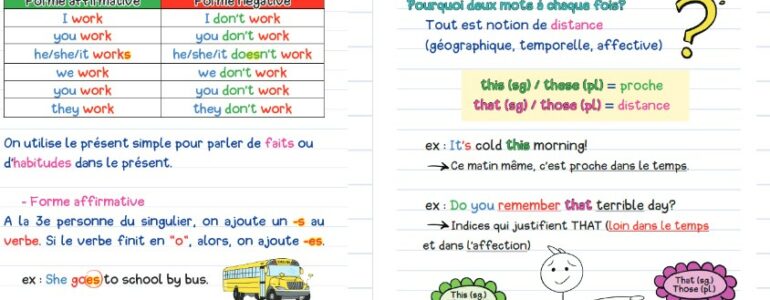 Forme affirmative Forme négative
I work I don't work
you work you don't work
he/she/it works he/she/it doesn't work
we work we don't work
you work you don't work
they work they don't work
On utilise le présent simple pour parler de faits ou
d'habitudes dans le présent.
- Forme affirmative
A la 3e personne du singulier, on ajoute un -s au
verbe. Si le verbe finit en "o", alors, on ajoute -es.
ex : She goes to school by bus.
Pourquoi deux mots à chaque fois?
Tout est notion de distance
(géographique, temporelle, affective)
this (sg) / these (pl) = proche
that (sg) / those (pl) = distance
ex : It's cold this morning!
→ Ce matin même, c'est proche dans le temps.
ex : Do you remember that terrible day?
→ Indices qui justifient THAT (loin dans le temps
et dans l'affection)
This (sg.)
That (sg.)
Those (pl.)